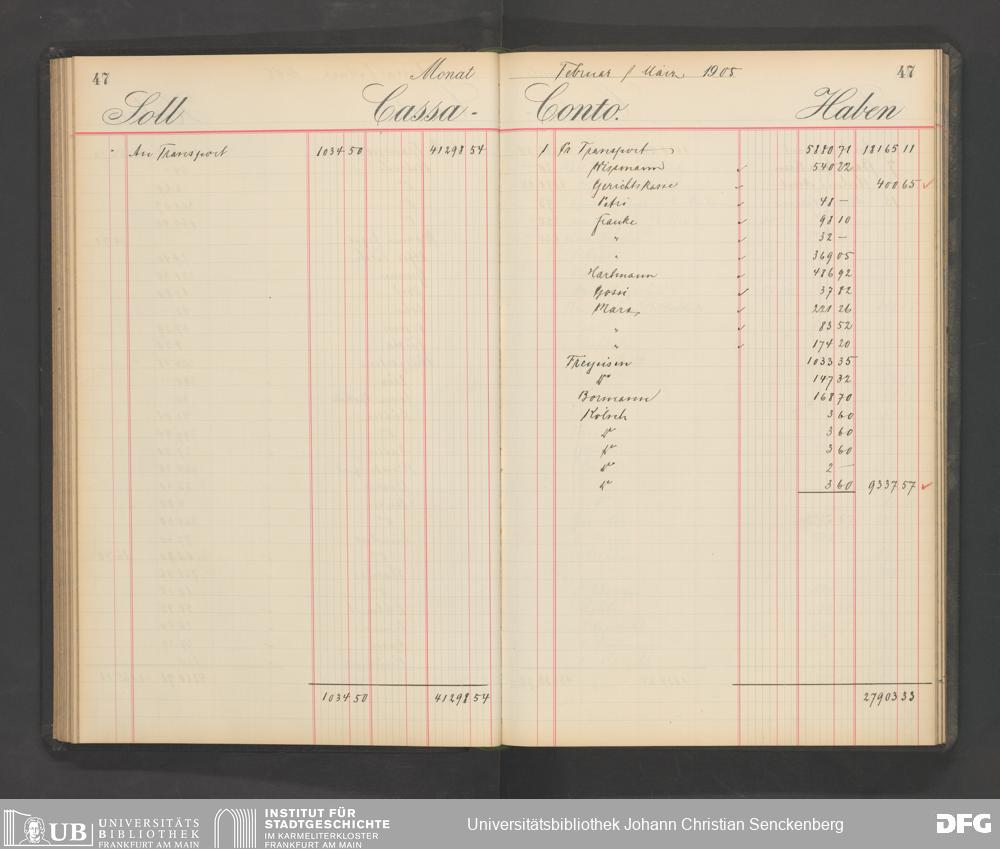 47
Monat
Soll
Cassa -
An Transport 1034 50 41298 54
1034 50 41298 54
Februar / März 1905
47
Conto.
Haben
1 Pr Transport 5880 71 18165 11
Wissmann ✓ 540 22
Gerichtskasse ✓ 400 65 ✓
Petri ✓ 48 —
Franke ✓ 98 10
" ✓ 32 —
" ✓ 369 05
Hartmann ✓ 486 92
Gossi ✓ 37 82
Marx ✓ 221 26
" ✓ 83 52
" ✓ 174 20
Freyeisen 1033 35
do 147 32
Bormann 168 70
Kölsch 3 60
do 3 60
do 3 60
do 2 —
do 3 60 9337 57 ✓
27903 33
UB UNIVERSITÄTS
BIBLIOTHEK
FRANKFURT AM MAIN
INSTITUT FÜR
STADTGESCHICHTE
IM KARMELITERKLOSTER
FRANKFURT AM MAIN
Universitätsbibliothek Johann Christian Senckenberg
DFG